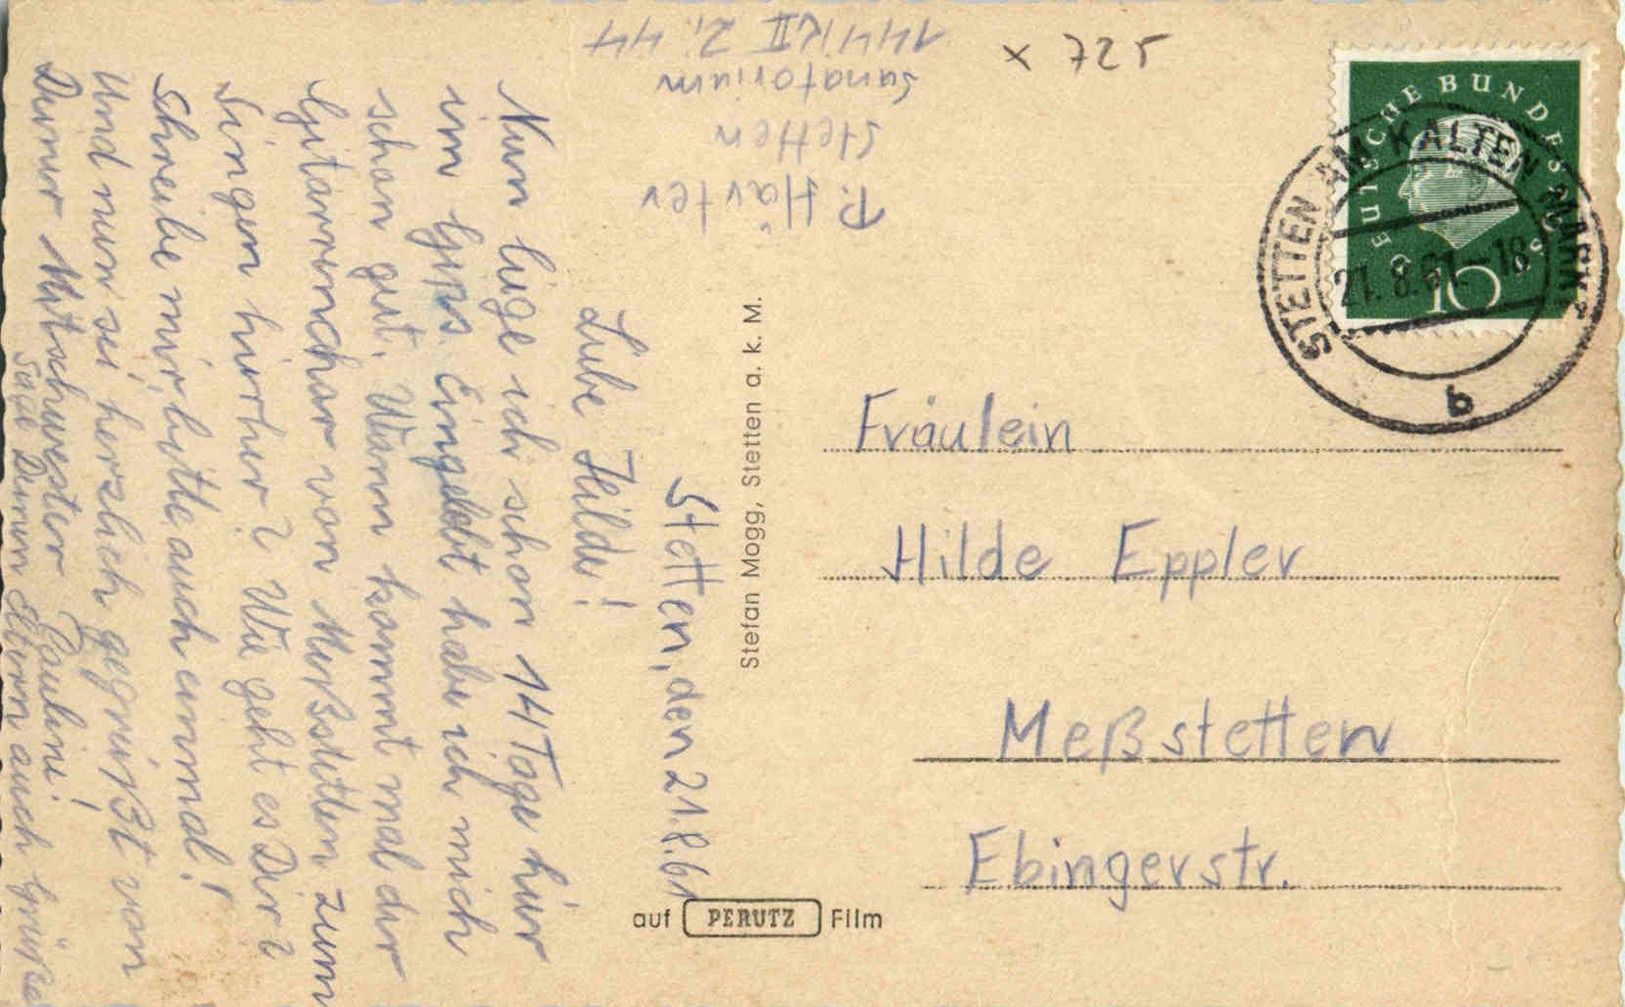 P. Härter
Stetten
Sanatorium
144/K II Zi. 44
x 725
DEUTSCHE BUNDESPOST
10
STETTEN AM KALTEN MARKT
21.8.61-18
b
Stetten, den 21.8.61
Liebe Hilde!
Nun liege ich schon 14 Tage hier
im Gips. Eingelebt habe ich mich
schon gut. Wann kommt mal der
Gitarrenchor von Meßstetten zum
Singen hierher? Wie geht es Dir?
Schreibe mir, bitte auch einmal!
Und nun sei herzlich gegrüßt von
Deiner Mitschwester Pauline!
Sage Deinen Eltern auch Grüße
Stefan Mogg, Stetten a. k. M.
auf PERUTZ Film
Fräulein
Hilde Eppler
Meßstetten
Ebingerstr.